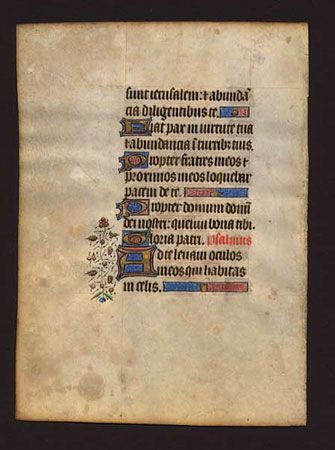 sunt ierusalem: et abunda
cia diligentibus te.
Fiat pax in virtute tua
et abundancia i turribus tuis.
Propter fratres meos et
proximos meos loquebar
pacem de te.
Propter domum domi
dei nostri: quesiui bona tibi.
Gloria patri. psalmus
Ad te leuaui oculos
meos qui habitas
in celis.